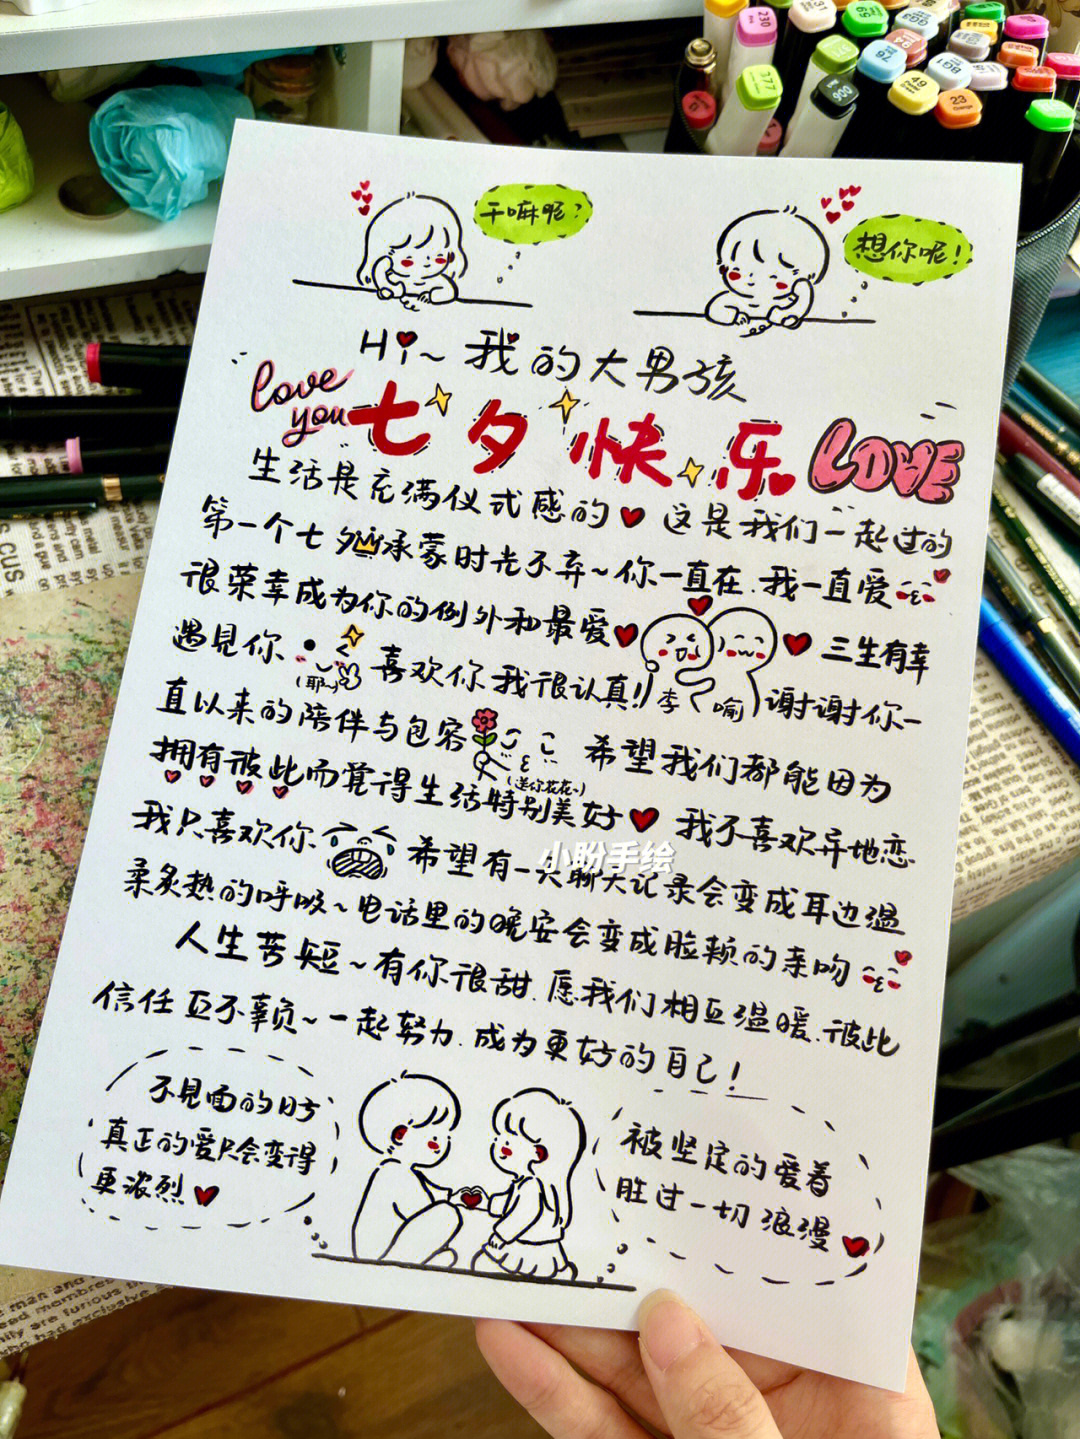 干嘛呢？
想你呢！
Hi~我的大男孩
love you
七夕快乐
LOVE
生活是充满仪式感的 这是我们一起过的
第一个七夕 承蒙时光不弃~你一直在.我一直爱
很荣幸成为你的例外和最爱 三生有幸
遇见你 (耶~) 喜欢你我很认真!! 李 喻 谢谢你一
直以来的陪伴与包容 (送你花花~) 希望我们都能因为
拥有彼此而觉得生活特别美好 我不喜欢异地恋
我只喜欢你 希望有一天聊天记录会变成耳边温
柔炙热的呼吸~电话里的晚安会变成脸颊的亲吻
人生苦短~有你很甜.愿我们相互温暖.彼此
信任互不辜负~一起努力.成为更好的自己!
不见面的时
真正的爱只会变得
更浓烈
被坚定的爱着
胜过一切浪漫
小盼手绘
230
377
900
49
23
76
94
BG1
man and